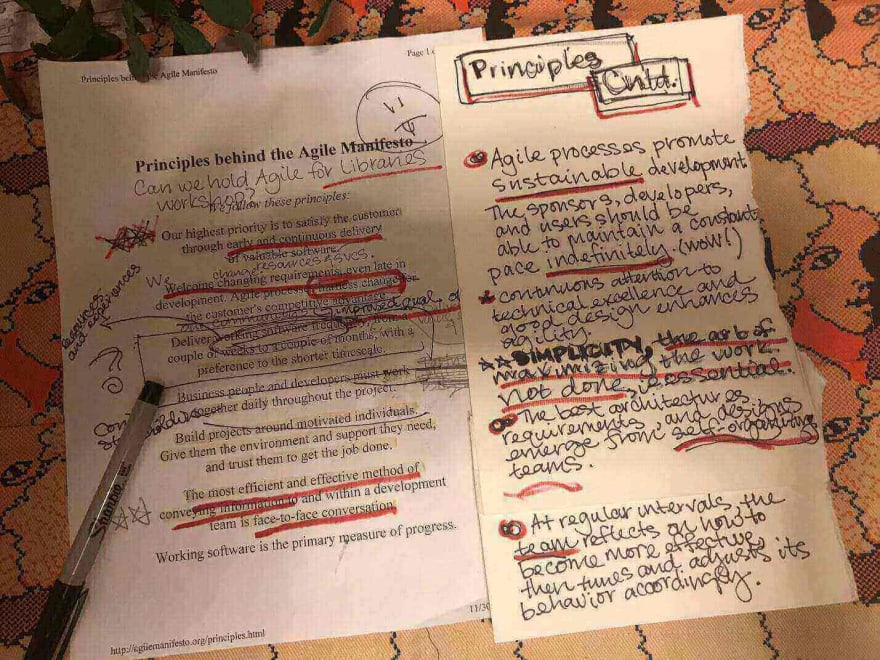 Principles behind the Agile Manifesto
Page 1
Principles behind the Agile Manifesto
Can we hold Agile for Libraries
workshop?
We follow these principles:
Our highest priority is to satisfy the customer
through early and continuous delivery
of valuable software.
change resources & svcs.
Welcome changing requirements, even late in
development. Agile processes harness change for
the customer's competitive advantage.
improved qual. of
resources
and experiences
Deliver working software frequently, from a
couple of weeks to a couple of months, with a
preference to the shorter timescale.
Business people and developers must work
together daily throughout the project.
Build projects around motivated individuals.
Give them the environment and support they need,
and trust them to get the job done.
The most efficient and effective method of
conveying information to and within a development
team is face-to-face conversation.
Working software is the primary measure of progress.
http://agilemanifesto.org/principles.html
11/30
Sharpie
Principles
Cntd.
Agile processes promote
sustainable development
The sponsors, developers,
and users should be
able to maintain a constant
pace indefinitely. (wow!)
continuous attention to
technical excellence and
good design enhances
agility.
SIMPLICITY, the art of
maximizing the work
not done, is essential.
The best architectures,
requirements, and designs
emerge from self-organizing
teams.
At regular intervals, the
team reflects on how to
become more effective,
then tunes and adjusts its
behavior accordingly.